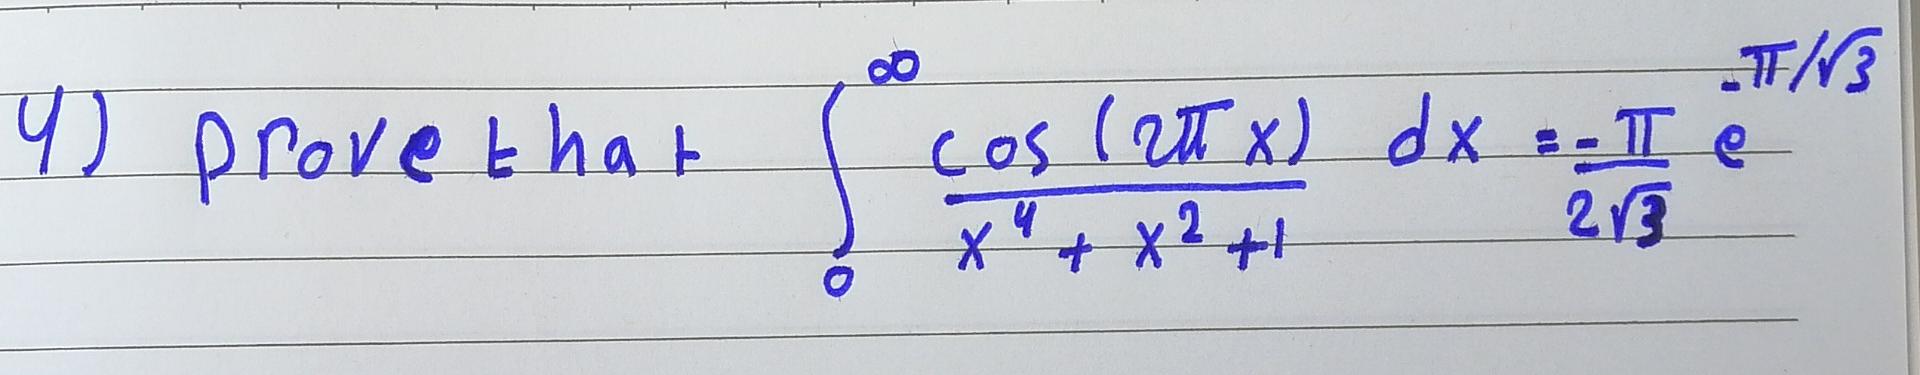 4) prove that ∫₀^∞ cos(2πx)/(x⁴ + x² + 1) dx = -π/(2√3) e^(-π/√3)